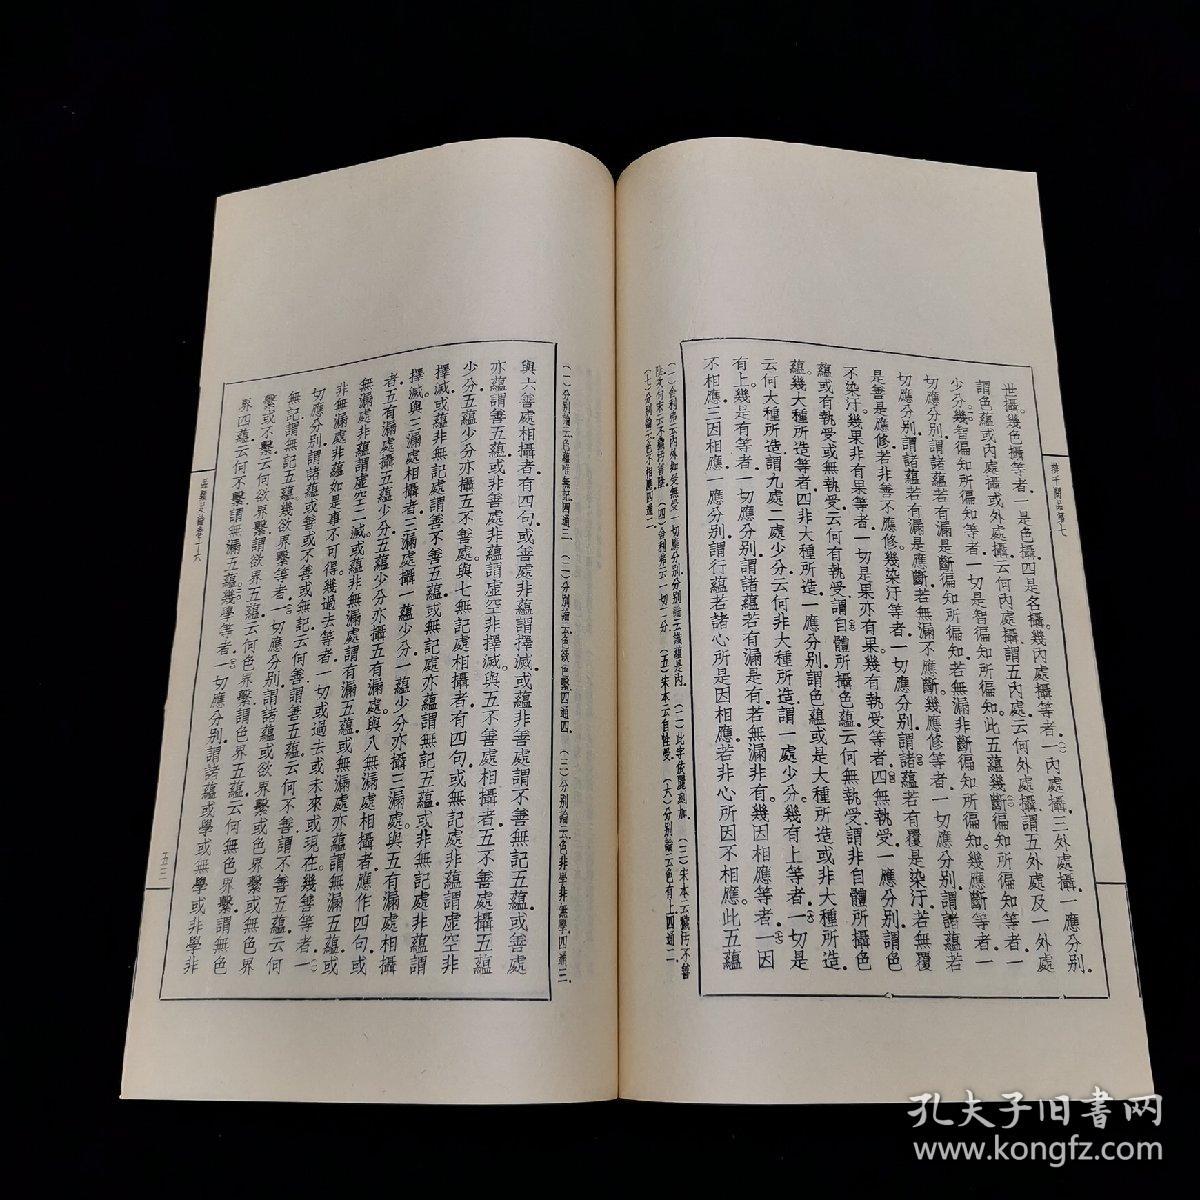 辯千問品第七
世攝。幾色攝等者。一是色攝。四是名攝。幾內處攝等者。一內處攝。三外處攝。一應分別。
謂色蘊或內處攝或外處攝。云何內處攝。謂五內處。云何外處攝。謂五外處及一外處
少分。幾智徧知所徧知等者。一切是智徧知所徧知。此五蘊幾斷徧知所徧知等者。一
切應分別。謂諸蘊若有漏是斷徧知所徧知。若無漏非斷徧知所徧知。幾應斷等者。一
切應分別。謂諸蘊若有漏是應斷。若無漏不應斷。幾應修等者。一切應分別。謂諸蘊若
是善是應修。若非善不應修。幾染汙等者。一切應分別。謂諸蘊若有覆是染汙。若無覆
不染汙。幾果非有果等者。一切是果亦有果。幾有執受等者。四無執受。一應分別。謂色
蘊或有執受或無執受。云何有執受。謂自體所攝色蘊。云何無執受。謂非自體所攝色
蘊。幾大種所造等者。四非大種所造。一應分別。謂色蘊或是大種所造或非大種所造。
云何大種所造。謂九處二處少分。云何非大種所造。謂一處少分。幾有上等者。一切是
有上。幾是有等者。一切應分別。謂諸蘊若有漏是有。若無漏非有。幾因相應等者。一因
不相應。三因相應。一應分別。謂行蘊若諸心所是因相應。若非心所因不相應。此五蘊
與六善處相攝者。有四句。或善處非蘊。謂擇滅。或蘊非善處。謂不善無記五蘊。或善處
亦蘊。謂善五蘊。或非善處非蘊。謂虛空非擇滅。與五不善處相攝者。五不善處攝五蘊
少分。五蘊少分亦攝五不善處。與七無記處相攝者。有四句。或無記處非蘊。謂虛空非
擇滅。或蘊非無記處。謂善不善五蘊。或無記處亦蘊。謂無記五蘊。或非無記處非蘊。謂
擇滅。與三漏處相攝者。三漏處攝一蘊少分。一蘊少分亦攝三漏處。與五有漏處相攝
者。五有漏處攝五蘊少分。五蘊少分亦攝五有漏處。與八無漏處相攝者。應作四句。或
無漏處非蘊。謂虛空二滅。或蘊非無漏處。謂有漏五蘊。或無漏處亦蘊。謂無漏五蘊。或
非無漏處非蘊。如是事不可得。幾過去等者。一切或過去或未來或現在。幾善等者。一
切應分別。謂諸蘊或善或不善或無記。云何善。謂善五蘊。云何不善。謂不善五蘊。云何
無記。謂無記五蘊。幾欲界繫等者。一切應分別。謂諸蘊或欲界繫或色界繫或無色界
繫或不繫。云何欲界繫。謂欲界五蘊。云何色界繫。謂色界五蘊。云何無色界繫。謂無色
界四蘊。云何不繫。謂無漏五蘊。幾學等者。一切應分別。謂諸蘊或學或無學或非學非
五三
孔夫子旧書网
www.kongfz.com